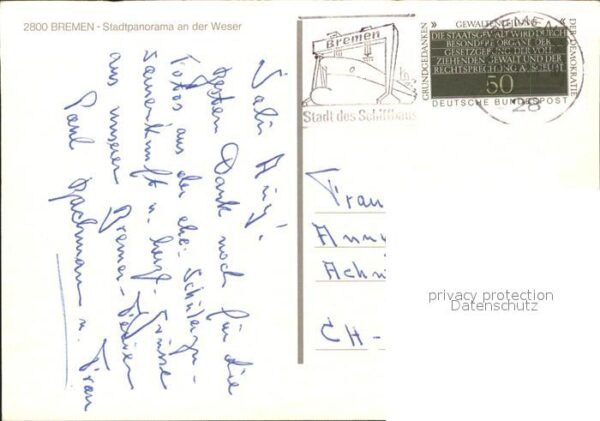 2800 BREMEN · Stadtpanorama an der Weser
Salü Anny!
Besten Dank noch für die
Fotos aus der ehe. Schülerzu-
sammenkunft u. herzl. Grüsse
aus unseren Bremer-Ferien
Paul Bachmann u. Frau
Bremen
Stadt des Schiffbaus
28
GRUNDGEDANKEN
GEWALTENTEILUNG
DER DEMOKRATIE
DIE STAATSGEWALT WIRD DURCH
BESONDERE ORGANE DER
GESETZGEBUNG DER VOLL
ZIEHENDEN GEWALT UND DER
RECHTSPRECHUNG AUSGEÜBT
50
DEUTSCHE BUNDESPOST
Frau
Anny
CH-
privacy protection
Datenschutz